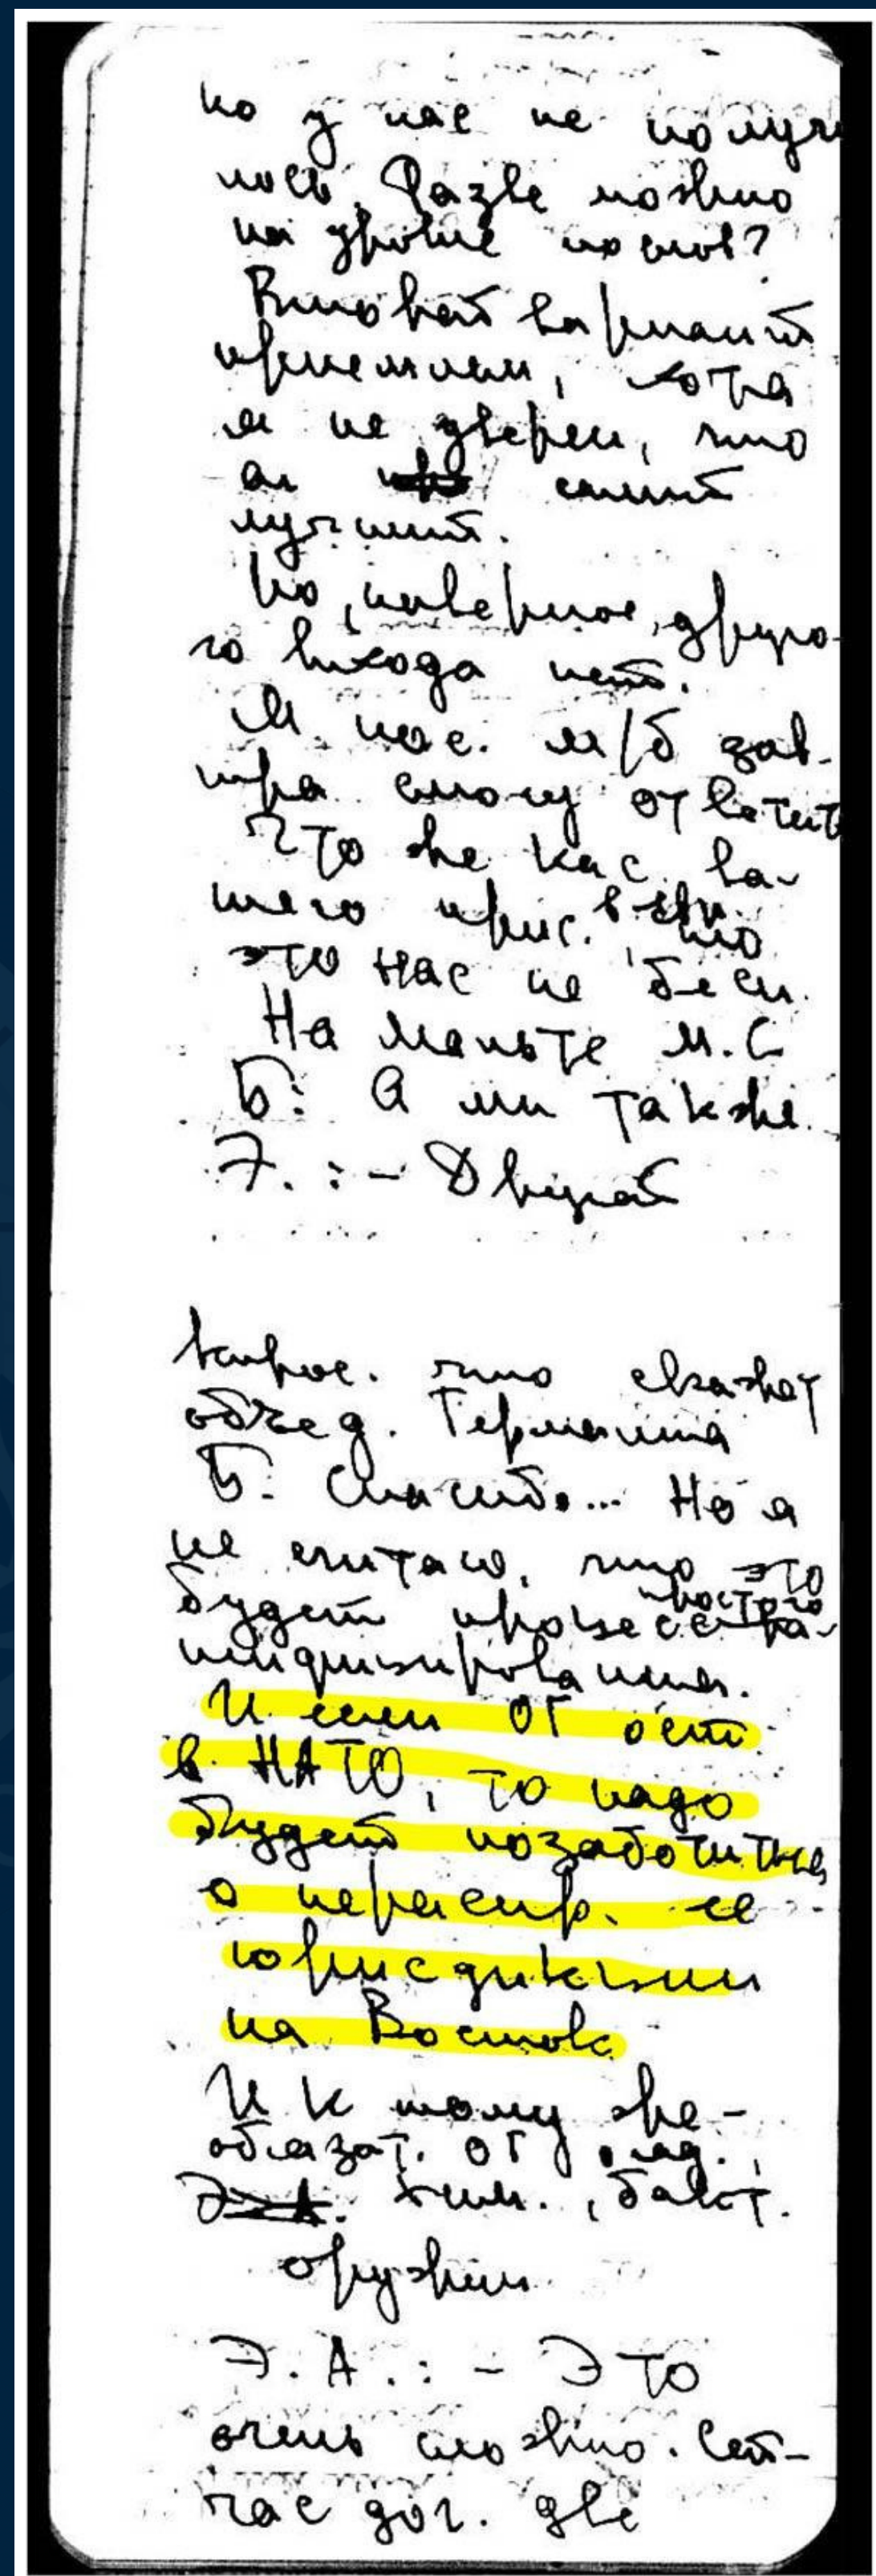 но у нас не получи
лось. Разве можно
на уровне послов?
Второй вариант
приемлем, хотя
я не уверен, что
он самый
лучший.
Но, наверное, друго-
го выхода нет.
М. нос. м/б зав-
тра смогу ответить
Что же кас. ва-
шего прис. в
это нас не бесп.
На Мальте М.С
Б: А мы также.
Э. : – Второй
вопрос. что скажет
объед. Германия
Б. Спасибо... Но я
не считаю, что это
будет процесс простого
нейтрализирования.
И если ОГ ост.
в НАТО, то надо
будет позаботиться
о нерасшир. ее
юрисдикции
на Восток
И к тому же –
обязат. ОГ о яд.,
хим., бакт.
оружии
Э. А. : – Это
очень сложно. Сей-
час дог. две